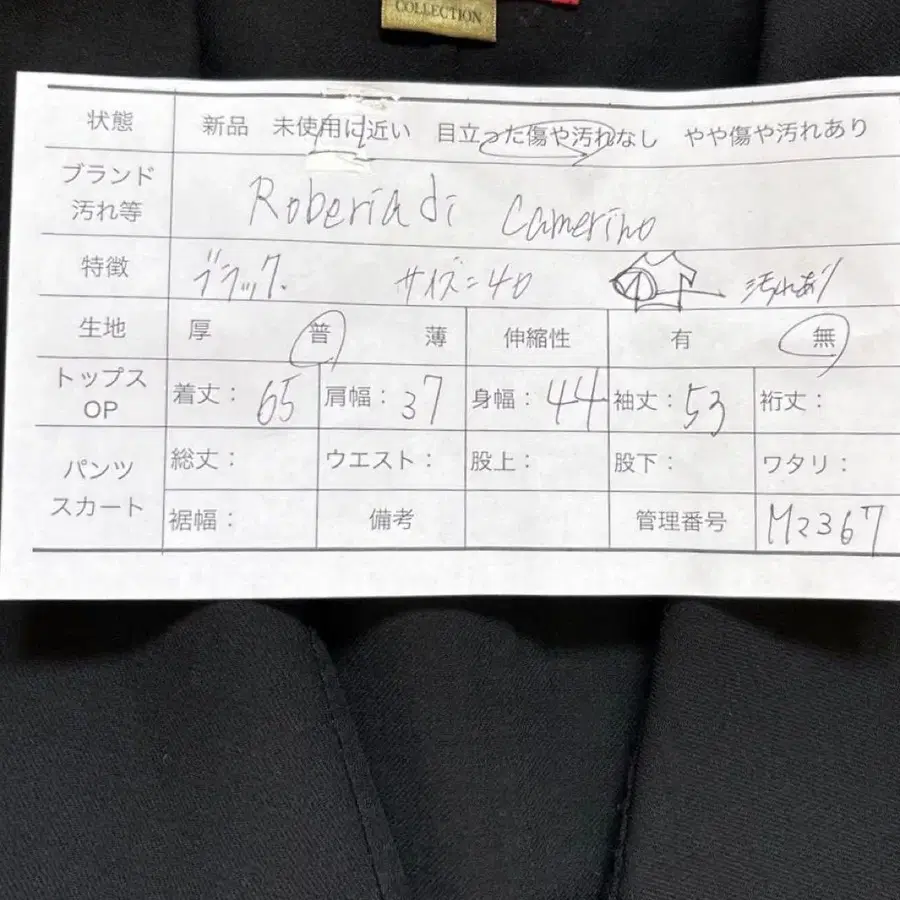 COLLECTION
状態 新品 未使用に近い 目立った傷や汚れなし やや傷や汚れあり
ブランド
汚れ等
Roberia di Camerino
特徴 ブラック. サイズ=40 汚れあり
生地 厚 普 薄 伸縮性 有 無
トップス
OP
着丈: 65 肩幅: 37 身幅: 44 袖丈: 53 裄丈:
パンツ
スカート
総丈: ウエスト: 股上: 股下: ワタリ:
裾幅: 備考 管理番号 M2367